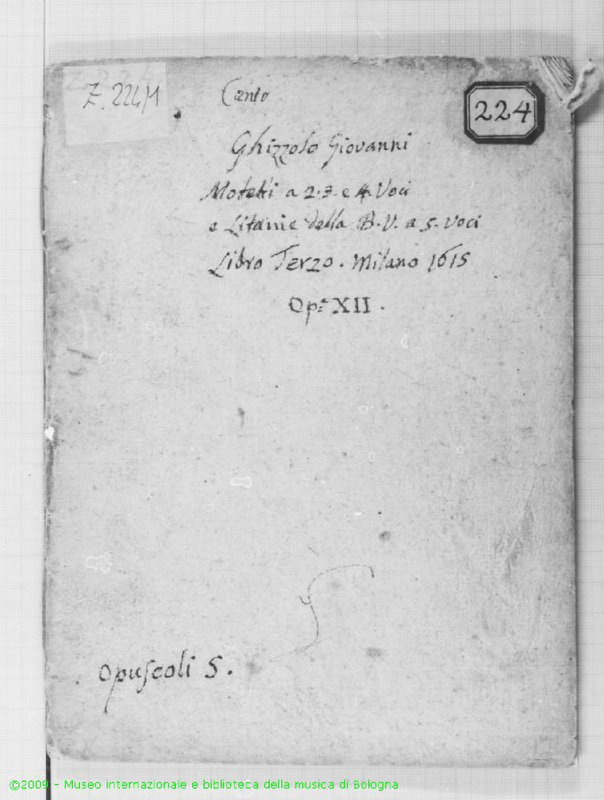 Z. 224/1
Canto
224
Ghizzolo Giovanni
Motetti a 2. 3. e 4. Voci
e Litanie della B. V. a 5. Voci
Libro Terzo. Milano 1615
Op.ᵃ XII.
Opuscoli 5.
©2009 - Museo internazionale e biblioteca della musica di Bologna